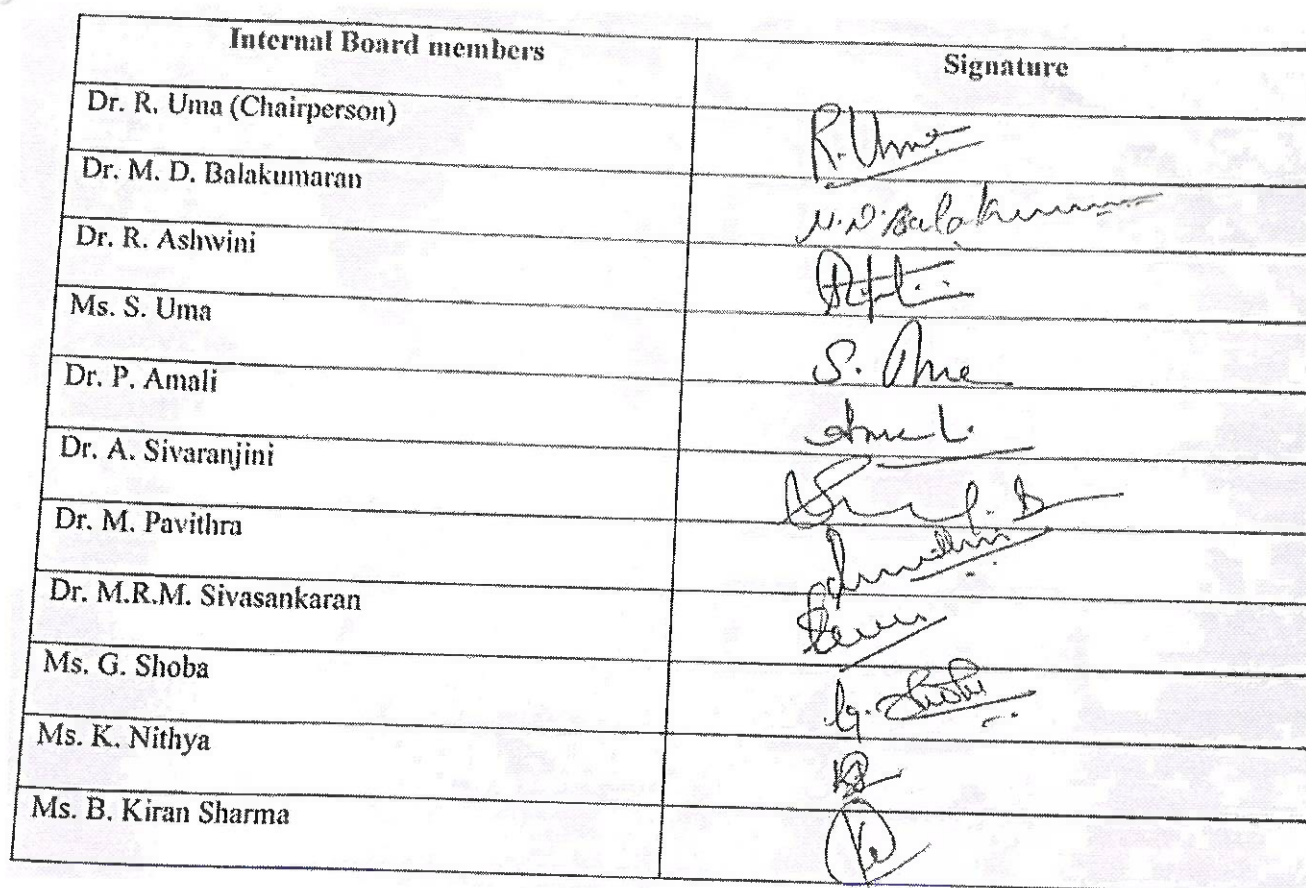 Internal Board members Signature
Dr. R. Uma (Chairperson) R. Uma
Dr. M. D. Balakumaran M.D. Balakumaran
Dr. R. Ashwini
Ms. S. Uma S. Uma
Dr. P. Amali
Dr. A. Sivaranjini
Dr. M. Pavithra
Dr. M.R.M. Sivasankaran
Ms. G. Shoba G. Shoba
Ms. K. Nithya
Ms. B. Kiran Sharma